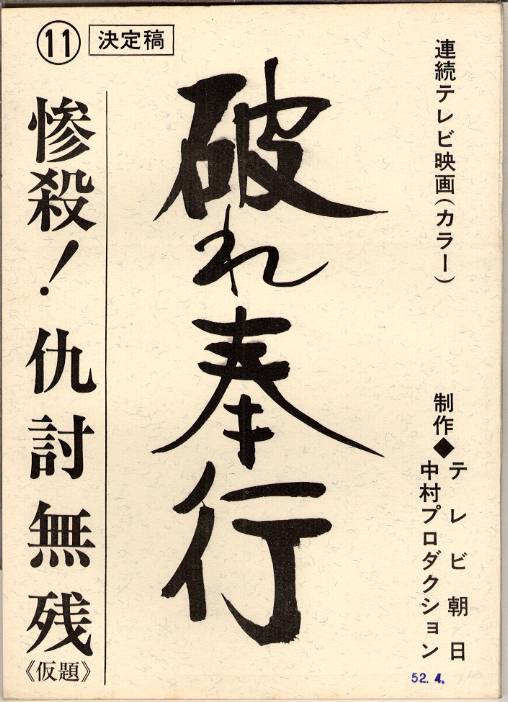 連続テレビ映画(カラー)
制作◆テレビ朝日
中村プロダクション
破れ奉行
⑪ 決定稿
惨殺!仇討無残
《仮題》
52.4.